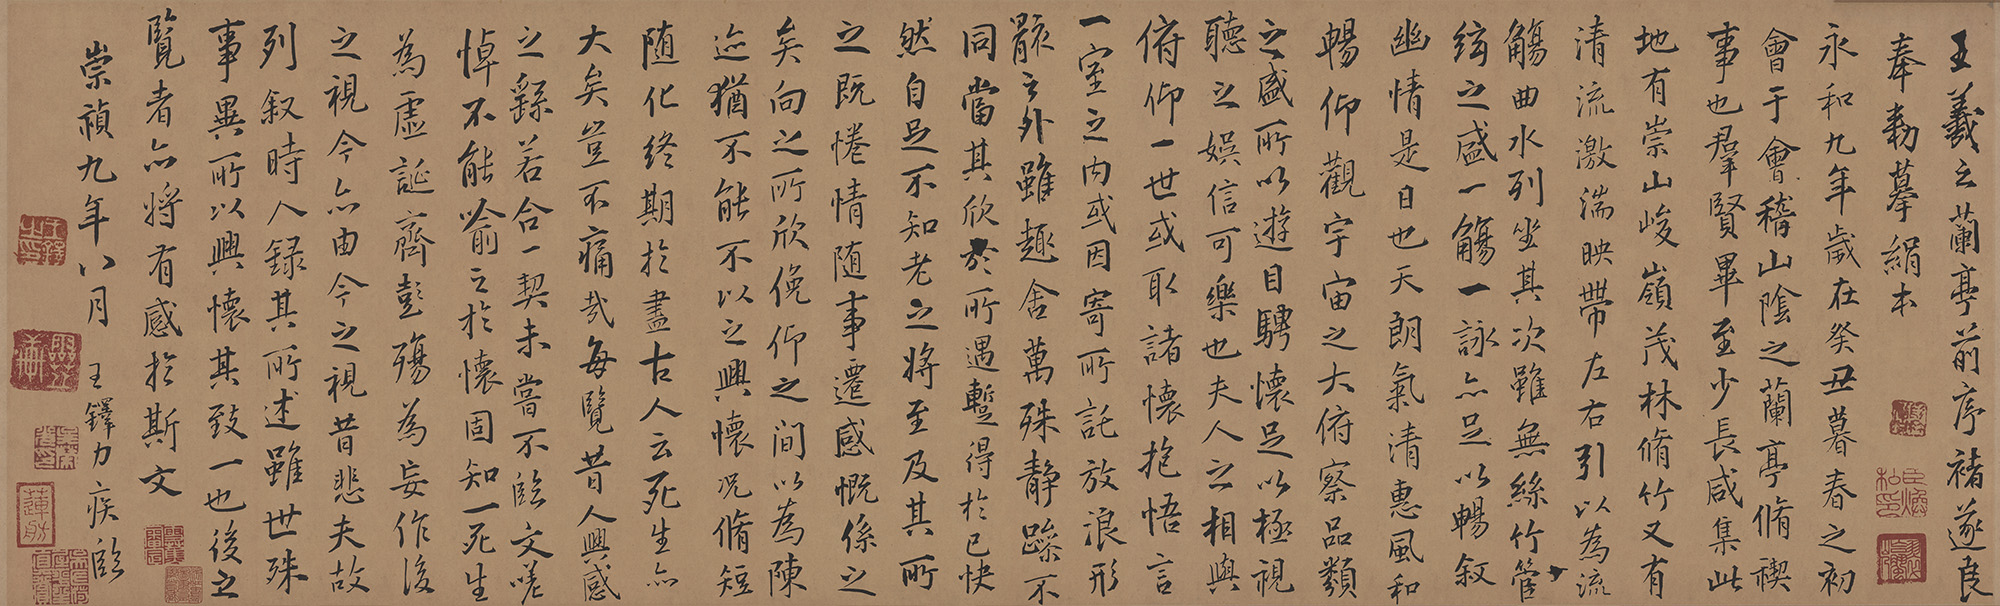 王羲之蘭亭前序褚遂良
奉勅摹絹本
永和九年歲在癸丑暮春之初
會于會稽山陰之蘭亭脩禊
事也羣賢畢至少長咸集此
地有崇山峻嶺茂林脩竹又有
清流激湍映帶左右引以為流
觴曲水列坐其次雖無絲竹管
絃之盛一觴一詠亦足以暢敘
幽情是日也天朗氣清惠風和
暢仰觀宇宙之大俯察品類
之盛所以遊目騁懷足以極視
聽之娛信可樂也夫人之相與
俯仰一世或取諸懷抱悟言
一室之內或因寄所託放浪形
骸之外雖趣舍萬殊靜躁不
同當其欣於所遇蹔得於己快
然自足不知老之將至及其所
之既惓情隨事遷感慨係之
矣向之所欣俛仰之間以為陳
迹猶不能不以之興懷況脩短
隨化終期於盡古人云死生亦
大矣豈不痛哉每覽昔人興感
之繇若合一契未嘗不臨文嗟
悼不能喻之於懷固知一死生
為虛誕齊彭殤為妄作後
之視今亦由今之視昔悲夫故
列敘時人錄其所述雖世殊
事異所以興懷其致一也後之
覽者亦將有感於斯文
崇禎九年八月 王鐸力疾臨